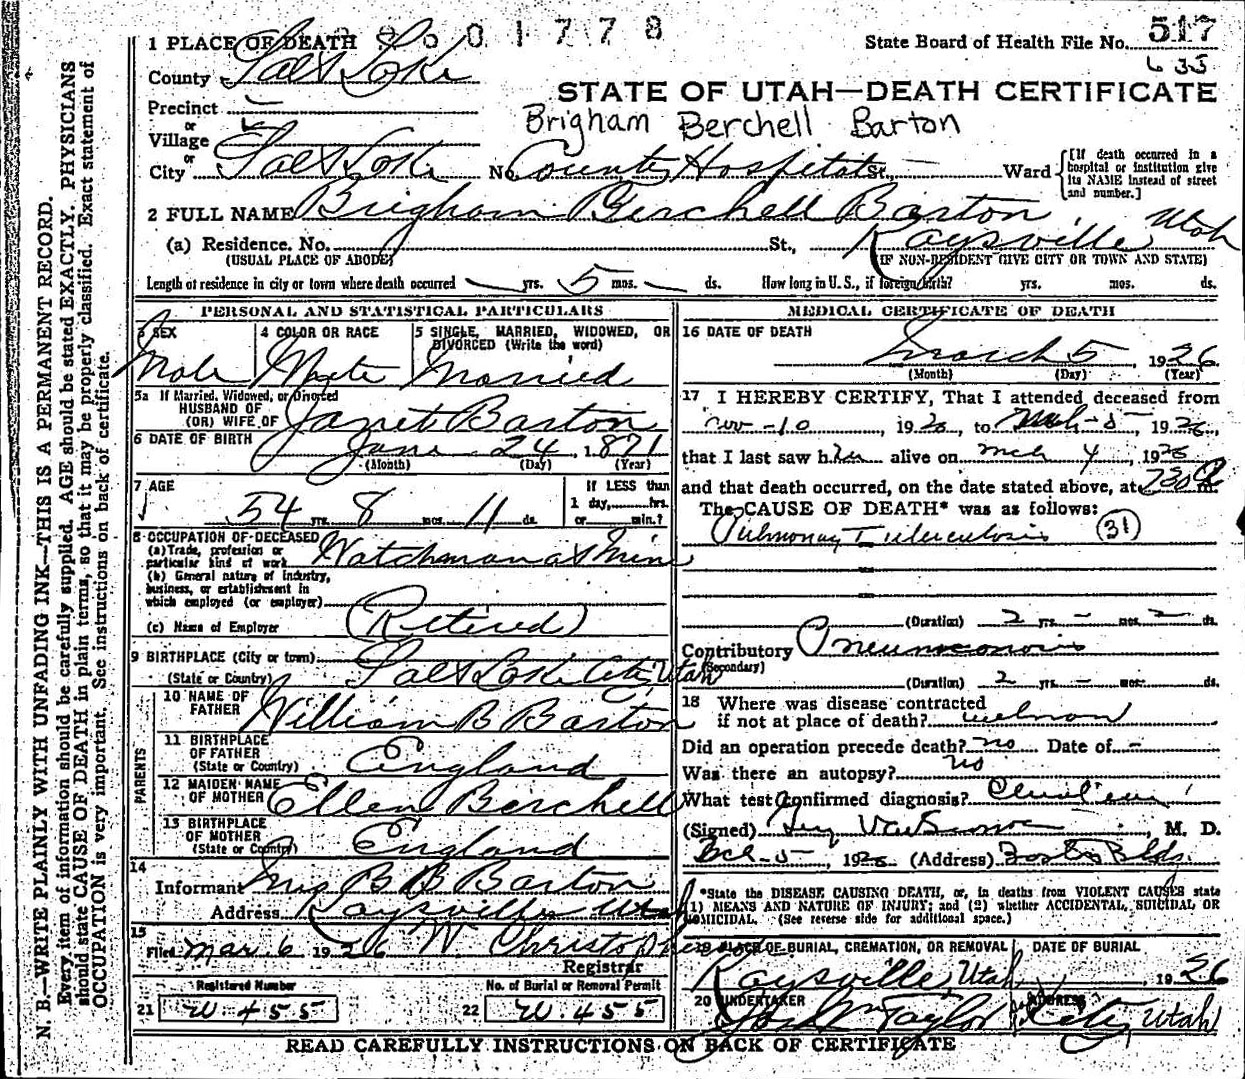 01778
State Board of Health File No. 517
635
1 PLACE OF DEATH
County Salt Lake
STATE OF UTAH—DEATH CERTIFICATE
Precinct
or
Village
Brigham Berchell Barton
or
City Salt Lake No. County Hospital St., Ward
[If death occurred in a hospital or institution give its NAME instead of street and number.]
2 FULL NAME Brigham Berchell Barton
(a) Residence. No. St., Kaysville Utah
(USUAL PLACE OF ABODE) (IF NON-RESIDENT GIVE CITY OR TOWN AND STATE)
Length of residence in city or town where death occurred yrs. 5 mos. ds. How long in U. S., if foreign birth? yrs. mos. ds.
PERSONAL AND STATISTICAL PARTICULARS
3 SEX 4 COLOR OR RACE 5 SINGLE, MARRIED, WIDOWED, OR DIVORCED (Write the word)
Male White Married
5a If Married, Widowed, or Divorced
HUSBAND OF
(OR) WIFE OF Janet Barton
6 DATE OF BIRTH June 24, 1871
(Month) (Day) (Year)
7 AGE
54 yrs. 8 mos. 11 ds.
If LESS than 1 day, hrs. or min.?
8 OCCUPATION OF DECEASED
(a) Trade, profession or particular kind of work Watchman at Mine
(b) General nature of industry, business, or establishment in which employed (or employer)
(c) Name of Employer (Retired)
9 BIRTHPLACE (City or town)
(State or Country) Salt Lake City, Utah
PARENTS
10 NAME OF FATHER William B Barton
11 BIRTHPLACE OF FATHER (State or Country) England
12 MAIDEN NAME OF MOTHER Ellen Berchell
13 BIRTHPLACE OF MOTHER (State or Country) England
14
Informant Mrs B B Barton
Address Kaysville Utah
15
Filed Mar. 6 1926 W. Christophers
Registrar
Registered Number No. of Burial or Removal Permit
21 W 455 22 W 455
MEDICAL CERTIFICATE OF DEATH
16 DATE OF DEATH
March 5, 1926
(Month) (Day) (Year)
17 I HEREBY CERTIFY, That I attended deceased from
Nov-10, 1925, to Mch-5, 1926,
that I last saw h alive on Mch 4, 1926
and that death occurred, on the date stated above, at 730 m.
The CAUSE OF DEATH* was as follows:
Pulmonary Tuberculosis (31)
(Duration) 2 yrs. - mos. 2 ds.
Contributory Pneumoconosis
(Secondary)
(Duration) 2 yrs. - mos. ds.
18 Where was disease contracted
if not at place of death?
Did an operation precede death? no Date of -
Was there an autopsy? no
What test confirmed diagnosis?
(Signed) , M. D.
(Address) Bldg.
*State the DISEASE CAUSING DEATH, or, in deaths from VIOLENT CAUSES state
(1) MEANS AND NATURE OF INJURY; and (2) whether ACCIDENTAL, SUICIDAL OR
HOMICIDAL. (See reverse side for additional space.)
19 PLACE OF BURIAL, CREMATION, OR REMOVAL DATE OF BURIAL
Kaysville, Utah 1926
20 UNDERTAKER ADDRESS
Taylor City, Utah
READ CAREFULLY INSTRUCTIONS ON BACK OF CERTIFICATE
N. B.—WRITE PLAINLY WITH UNFADING INK—THIS IS A PERMANENT RECORD.
Every item of information should be carefully supplied. AGE should be stated EXACTLY. PHYSICIANS
should state CAUSE OF DEATH in plain terms, so that it may be properly classified. Exact statement of
OCCUPATION is very important. See instructions on back of certificate.